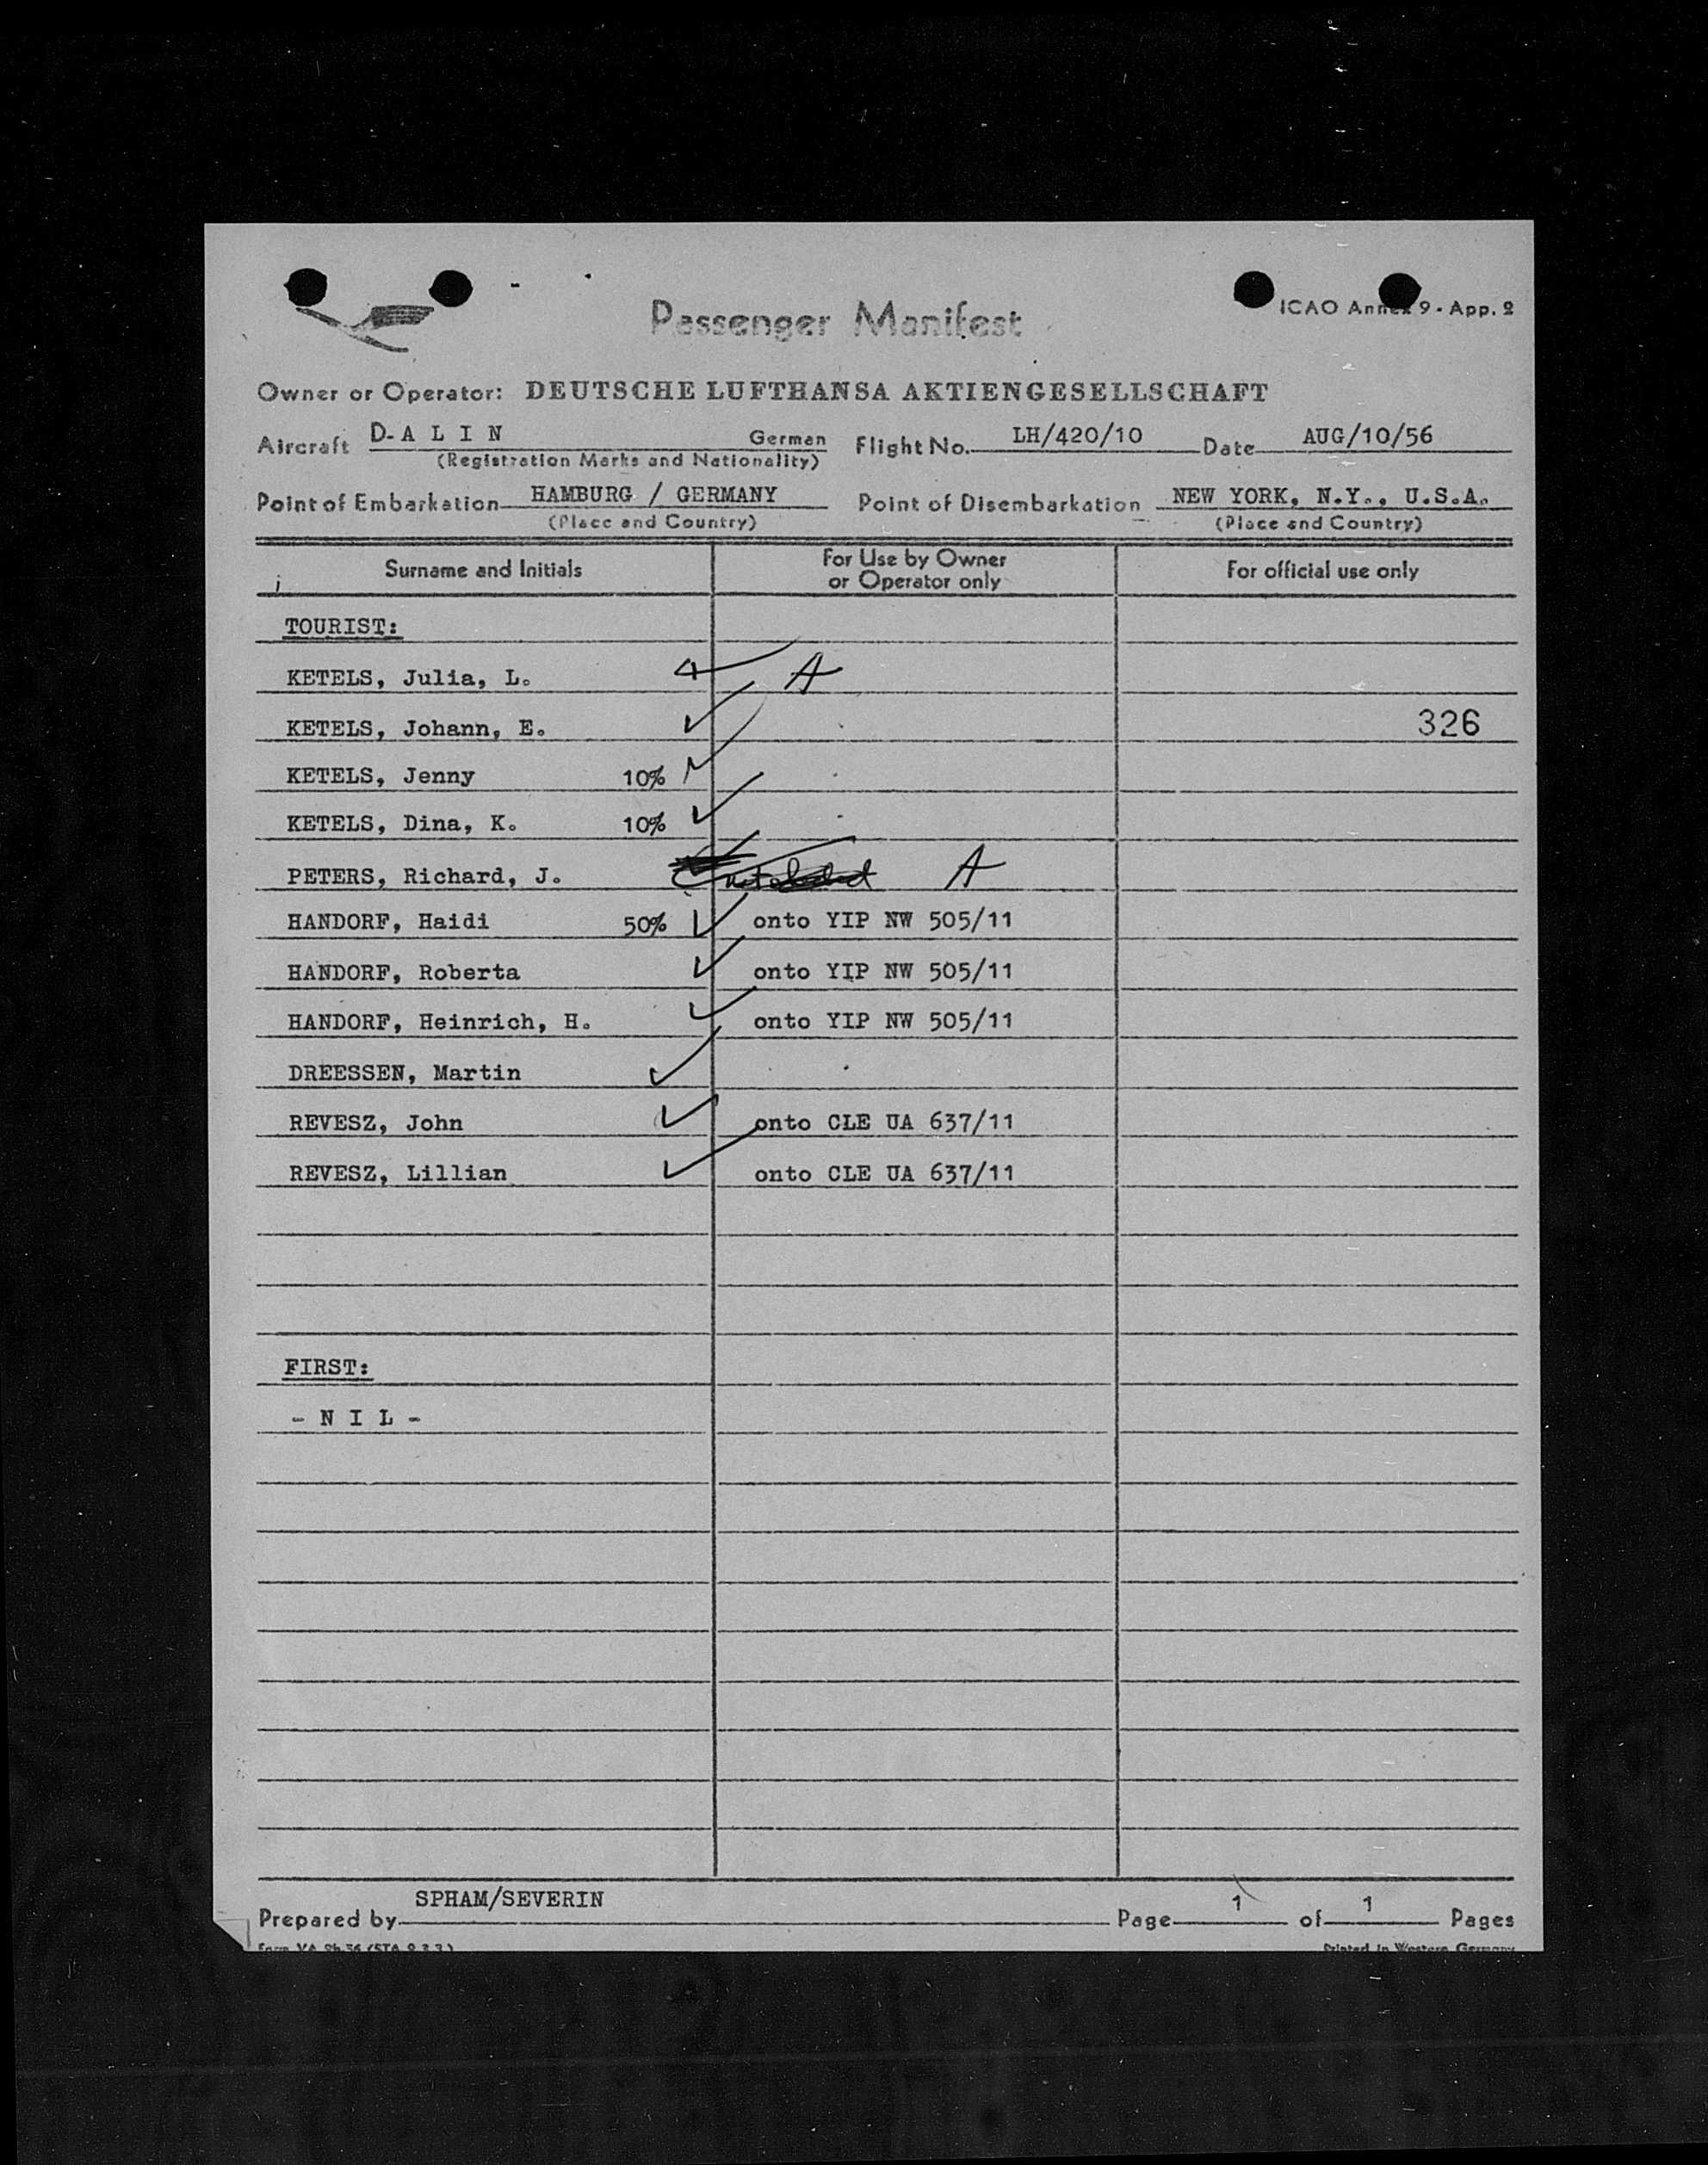 Passenger Manifest
ICAO Annex 9 - App. 2
Owner or Operator: DEUTSCHE LUFTHANSA AKTIENGESELLSCHAFT
Aircraft D-A L I N German Flight No. LH/420/10 Date AUG/10/56
(Registration Marks and Nationality)
Point of Embarkation HAMBURG / GERMANY Point of Disembarkation NEW YORK, N.Y., U.S.A.
(Place and Country) (Place and Country)
Surname and Initials For Use by Owner or Operator only For official use only
TOURIST:
KETELS, Julia, L. A
KETELS, Johann, E. 326
KETELS, Jenny 10%
KETELS, Dina, K. 10%
PETERS, Richard, J. A
HANDORF, Haidi 50% onto YIP NW 505/11
HANDORF, Roberta onto YIP NW 505/11
HANDORF, Heinrich, H. onto YIP NW 505/11
DREESSEN, Martin
REVESZ, John onto CLE UA 637/11
REVESZ, Lillian onto CLE UA 637/11
FIRST:
- N I L -
Prepared by SPHAM/SEVERIN Page 1 of 1 Pages
Printed in Western Germany